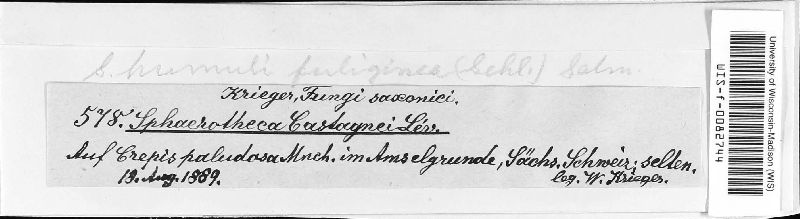 S. humuli fuliginea (Schl.) Salm.
Krieger, Fungi saxonici.
578. Sphaerotheca Castagnei Lév.
Auf Crepis paludosa Mnch. im Amselgrunde, Sächs. Schweiz; selten.
13. Aug. 1889.
leg. W. Krieger.
University of Wisconsin-Madison (WIS)
WIS-f-0082744